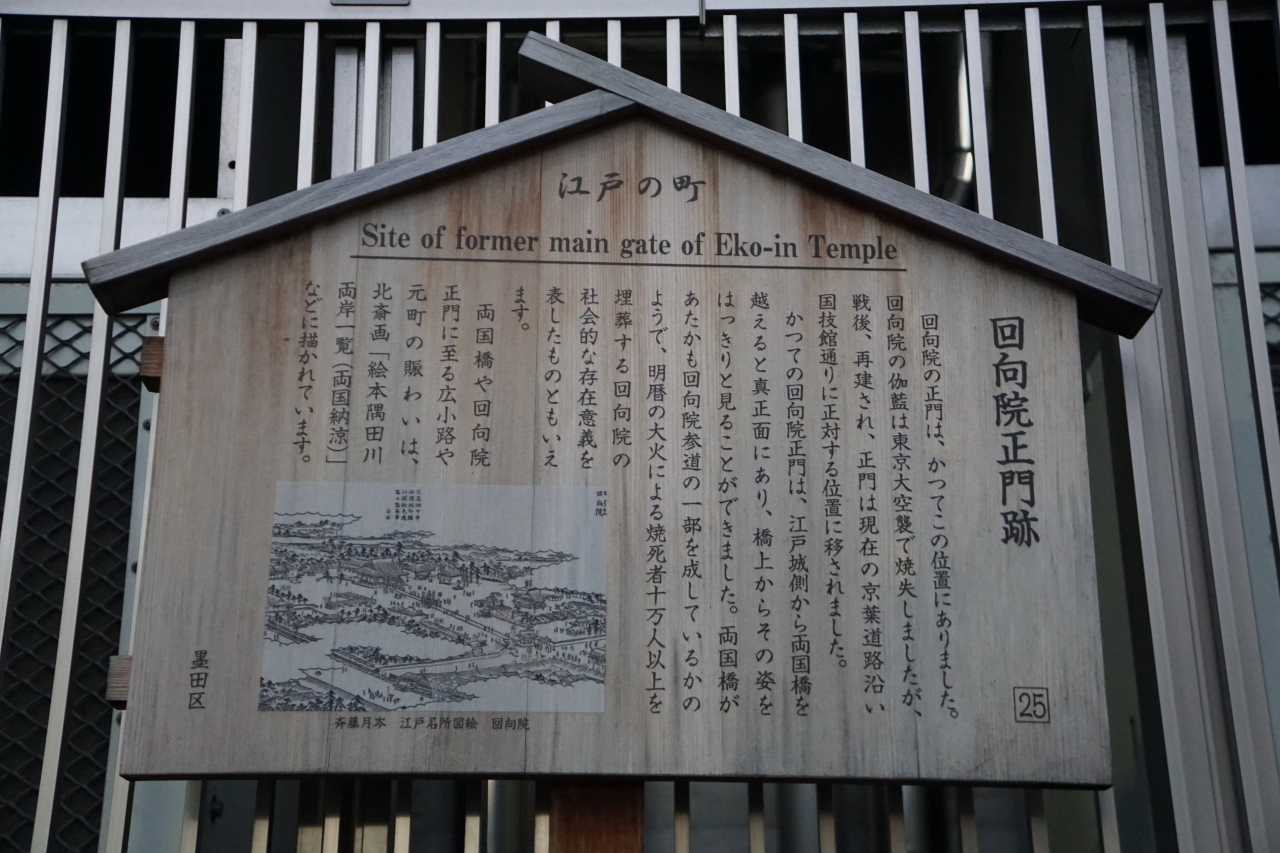 江戸の町
Site of former main gate of Eko-in Temple
回向院正門跡
25
回向院の正門は、かつてこの位置にありました。
回向院の伽藍は東京大空襲で焼失しましたが、
戦後、再建され、正門は現在の京葉道路沿い
国技館通りに正対する位置に移されました。
かつての回向院正門は、江戸城側から両国橋を
越えると真正面にあり、橋上からその姿を
はっきりと見ることができました。両国橋が
あたかも回向院参道の一部を成しているかの
ようで、明暦の大火による焼死者十万人以上を
埋葬する回向院の
社会的な存在意義を
表したものともいえ
ます。
両国橋や回向院
正門に至る広小路や
元町の賑わいは、
北斎画「絵本隅田川
両岸一覧（両国納涼）」
などに描かれています。
回向院
斉藤月岑 江戸名所図絵 回向院
墨田区